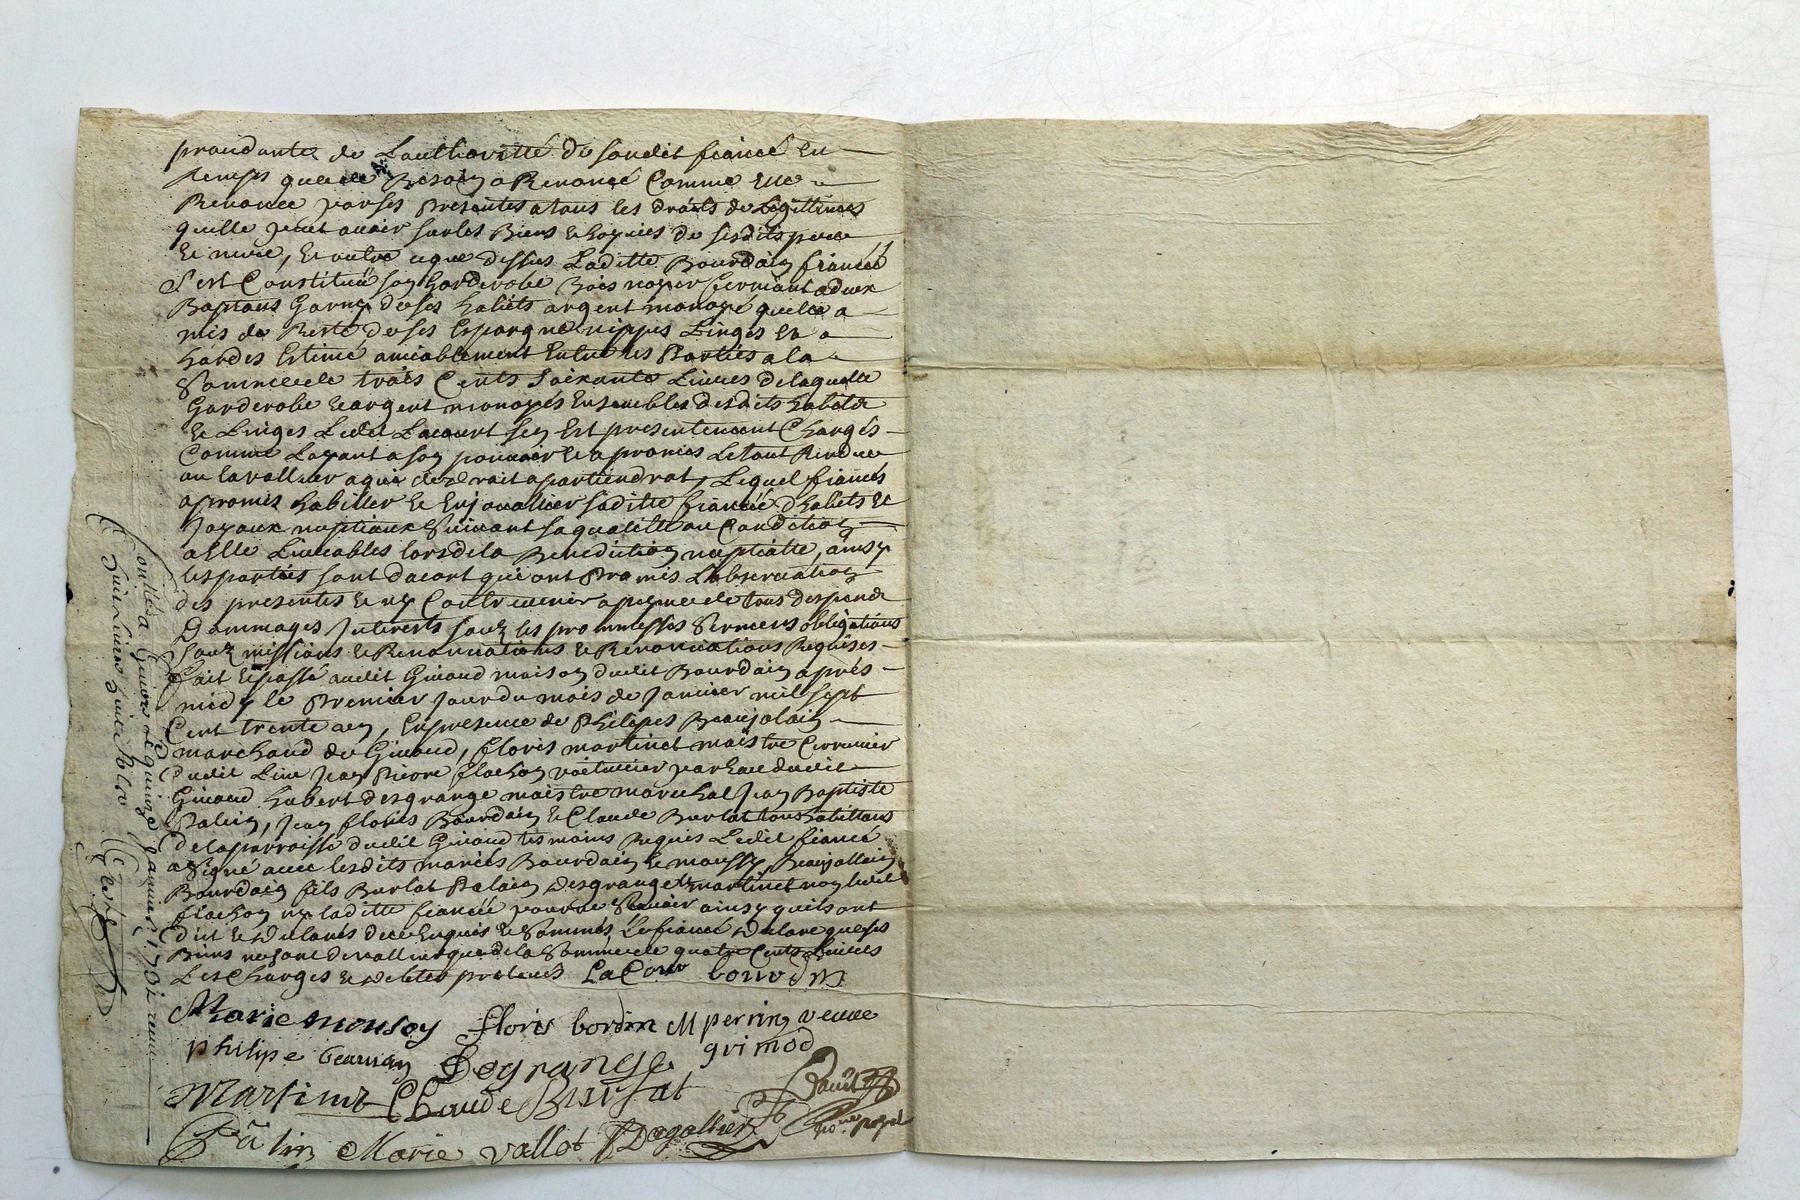 prandante de Lauthoritté de sondit fiancé En
temps quelle Besoin a Renoncé Comme Elle
Renonce par ses presentes a tous les droits de Legittimes
quille peut avoir sur les Biens de sesdits pere
Et mere, Et outre ce que dessus Laditte Bourdain fiancée
S'est Constitué son Garderobe Bois noyer fermant a deux
Battans Garny de ses habits argent monoyé quelle a
mis de Reste de ses Espargne nippes Linges Et
hardes Estimé amiablement Entre les Parties a la
Somme de trois Cents Soixante Livres de laquelle
Garderobe Et argent monoyés Ensembles desdits habits
Et Linges Ledit Lacourt sen Est presentement Chargés
Comme Layant a son pouvoir Et a promis Le tout Rendre
ou la valleur a qui de droit apartiendrat, Lequel fiancés
a promis habiller Et Enjouallier saditte fiancée d'habits Et
Joyaux nuptiaux Suivant sa qualitté ou Condition
a Elle Livrables lors de la Benediction nuptialle, ainsy
les parties sont dacort qui ont Promis Lobservation
des presentes Et ny Contrevenir a peyne de tous despends
Dommages Interests sous les prommesses Serments obligations
soumissions Et Renonciations Et Renonciations Requises
fait Et passé audit Givord maison dudit Bourdain après
midy le Premier Jour du mois de Janvier mil sept
Cent trente un, En presence de Philipes Beaujolain
marchand de Givord, floris martinet maistre
dudit Lieu Jean Pierre flachon voiturier par Eau dudit
Givord hubert desgrange maistre marechal Jean Baptiste
Palin, Jean floris Bourdain Et Claude Burlat tous habittans
de la parroisse dudit Givord tesmoins Requis Ledit fiancé
a Signé avec lesdits mariés Bourdain Et moussy, Beaujollain
Bourdain fils Burlat Palain, desgrange Et martinet non ledit
flachon ny laditte fiancée pour ne Scavoir ainsy quils ont
dit Et declarés de ce Enquis Et Sommés, Le fiancé declare que ses
Biens ne sont de valleur que de la Somme de quatre Cents Livres
Les Charges Et debtes prelevés LaCour bourdin
Marie mousoy floris bordin M perrin veuve
philipe Degrange grimod
Martinet Claude Bursat
Pâlin Marie vallot Degallier
Nore royal
Conttrollé a Givord Le quinze Janvier 1731 reçu
huit Livres huit sols